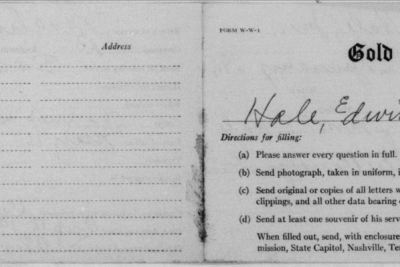 Address
FORM W-W-1
Gold
Hale, Edwi
Directions for filling:
(a) Please answer every question in full.
(b) Send photograph, taken in uniform, i
(c) Send original or copies of all letters w
clippings, and all other data bearing
(d) Send at least one souvenir of his serv
When filled out, send, with enclosure
mission, State Capitol, Nashville, Te